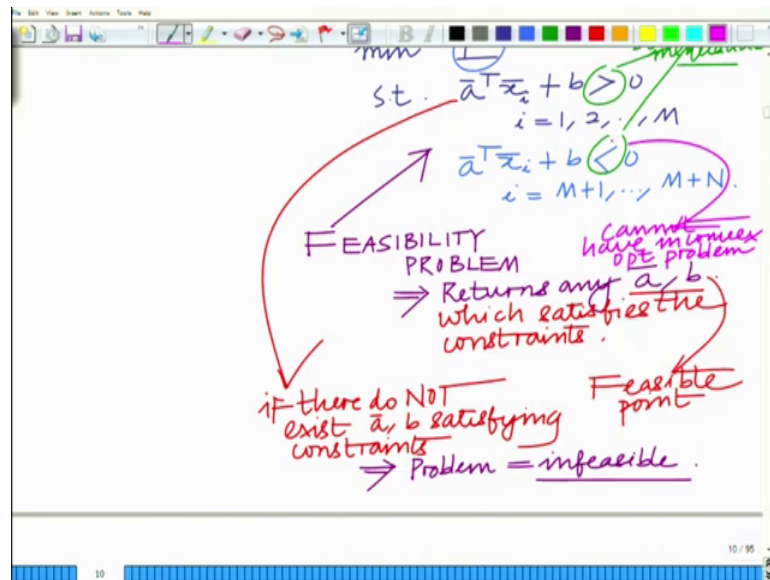 File Edit View Insert Actions Tools Help
B I
min 1
s.t. āᵀx̄ᵢ + b > 0
i = 1, 2, .., M
āᵀx̄ᵢ + b < 0
i = M+1, ..., M+N.
cannot
have in convex
opt problem
FEASIBILITY
PROBLEM
⇒ Returns any ā, b
which satisfies the
constraints.
Feasible
point
if there do NOT
exist ā, b satisfying
constraints
⇒ Problem = infeasible.
10 / 95
10